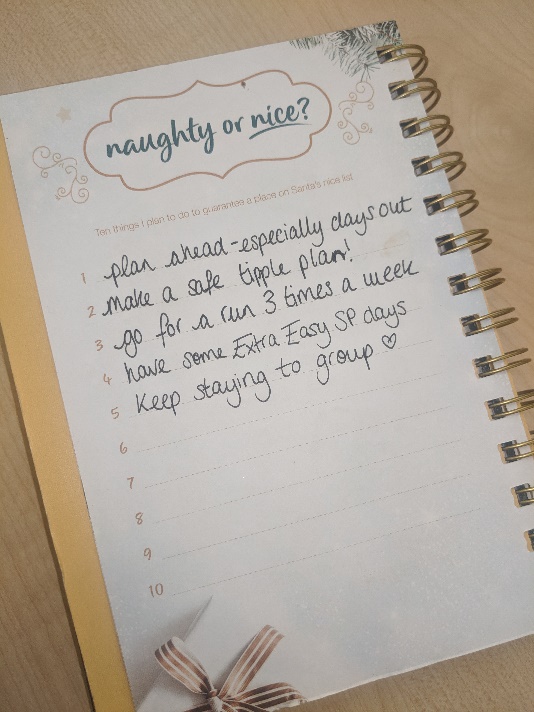 naughty or nice?
Ten things I plan to do to guarantee a place on Santa's nice list
1 plan ahead - especially days out
2 make a safe tipple plan!
3 go for a run 3 times a week
4 have some Extra Easy SP days
5 Keep staying to group ♡
6
7
8
9
10